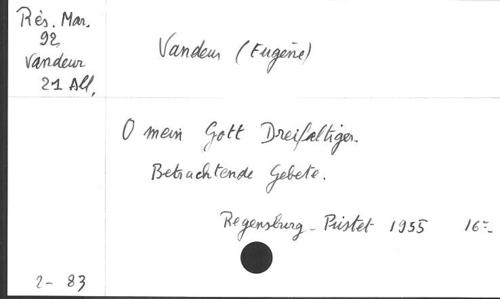 Rés. Mar.
92
Vandeur
21 All,
Vandeur (Eugène)
O mein Gott Dreifaltiger.
Betrachtende Gebete.
Regensburg - Pustet 1955 16=
2- 83